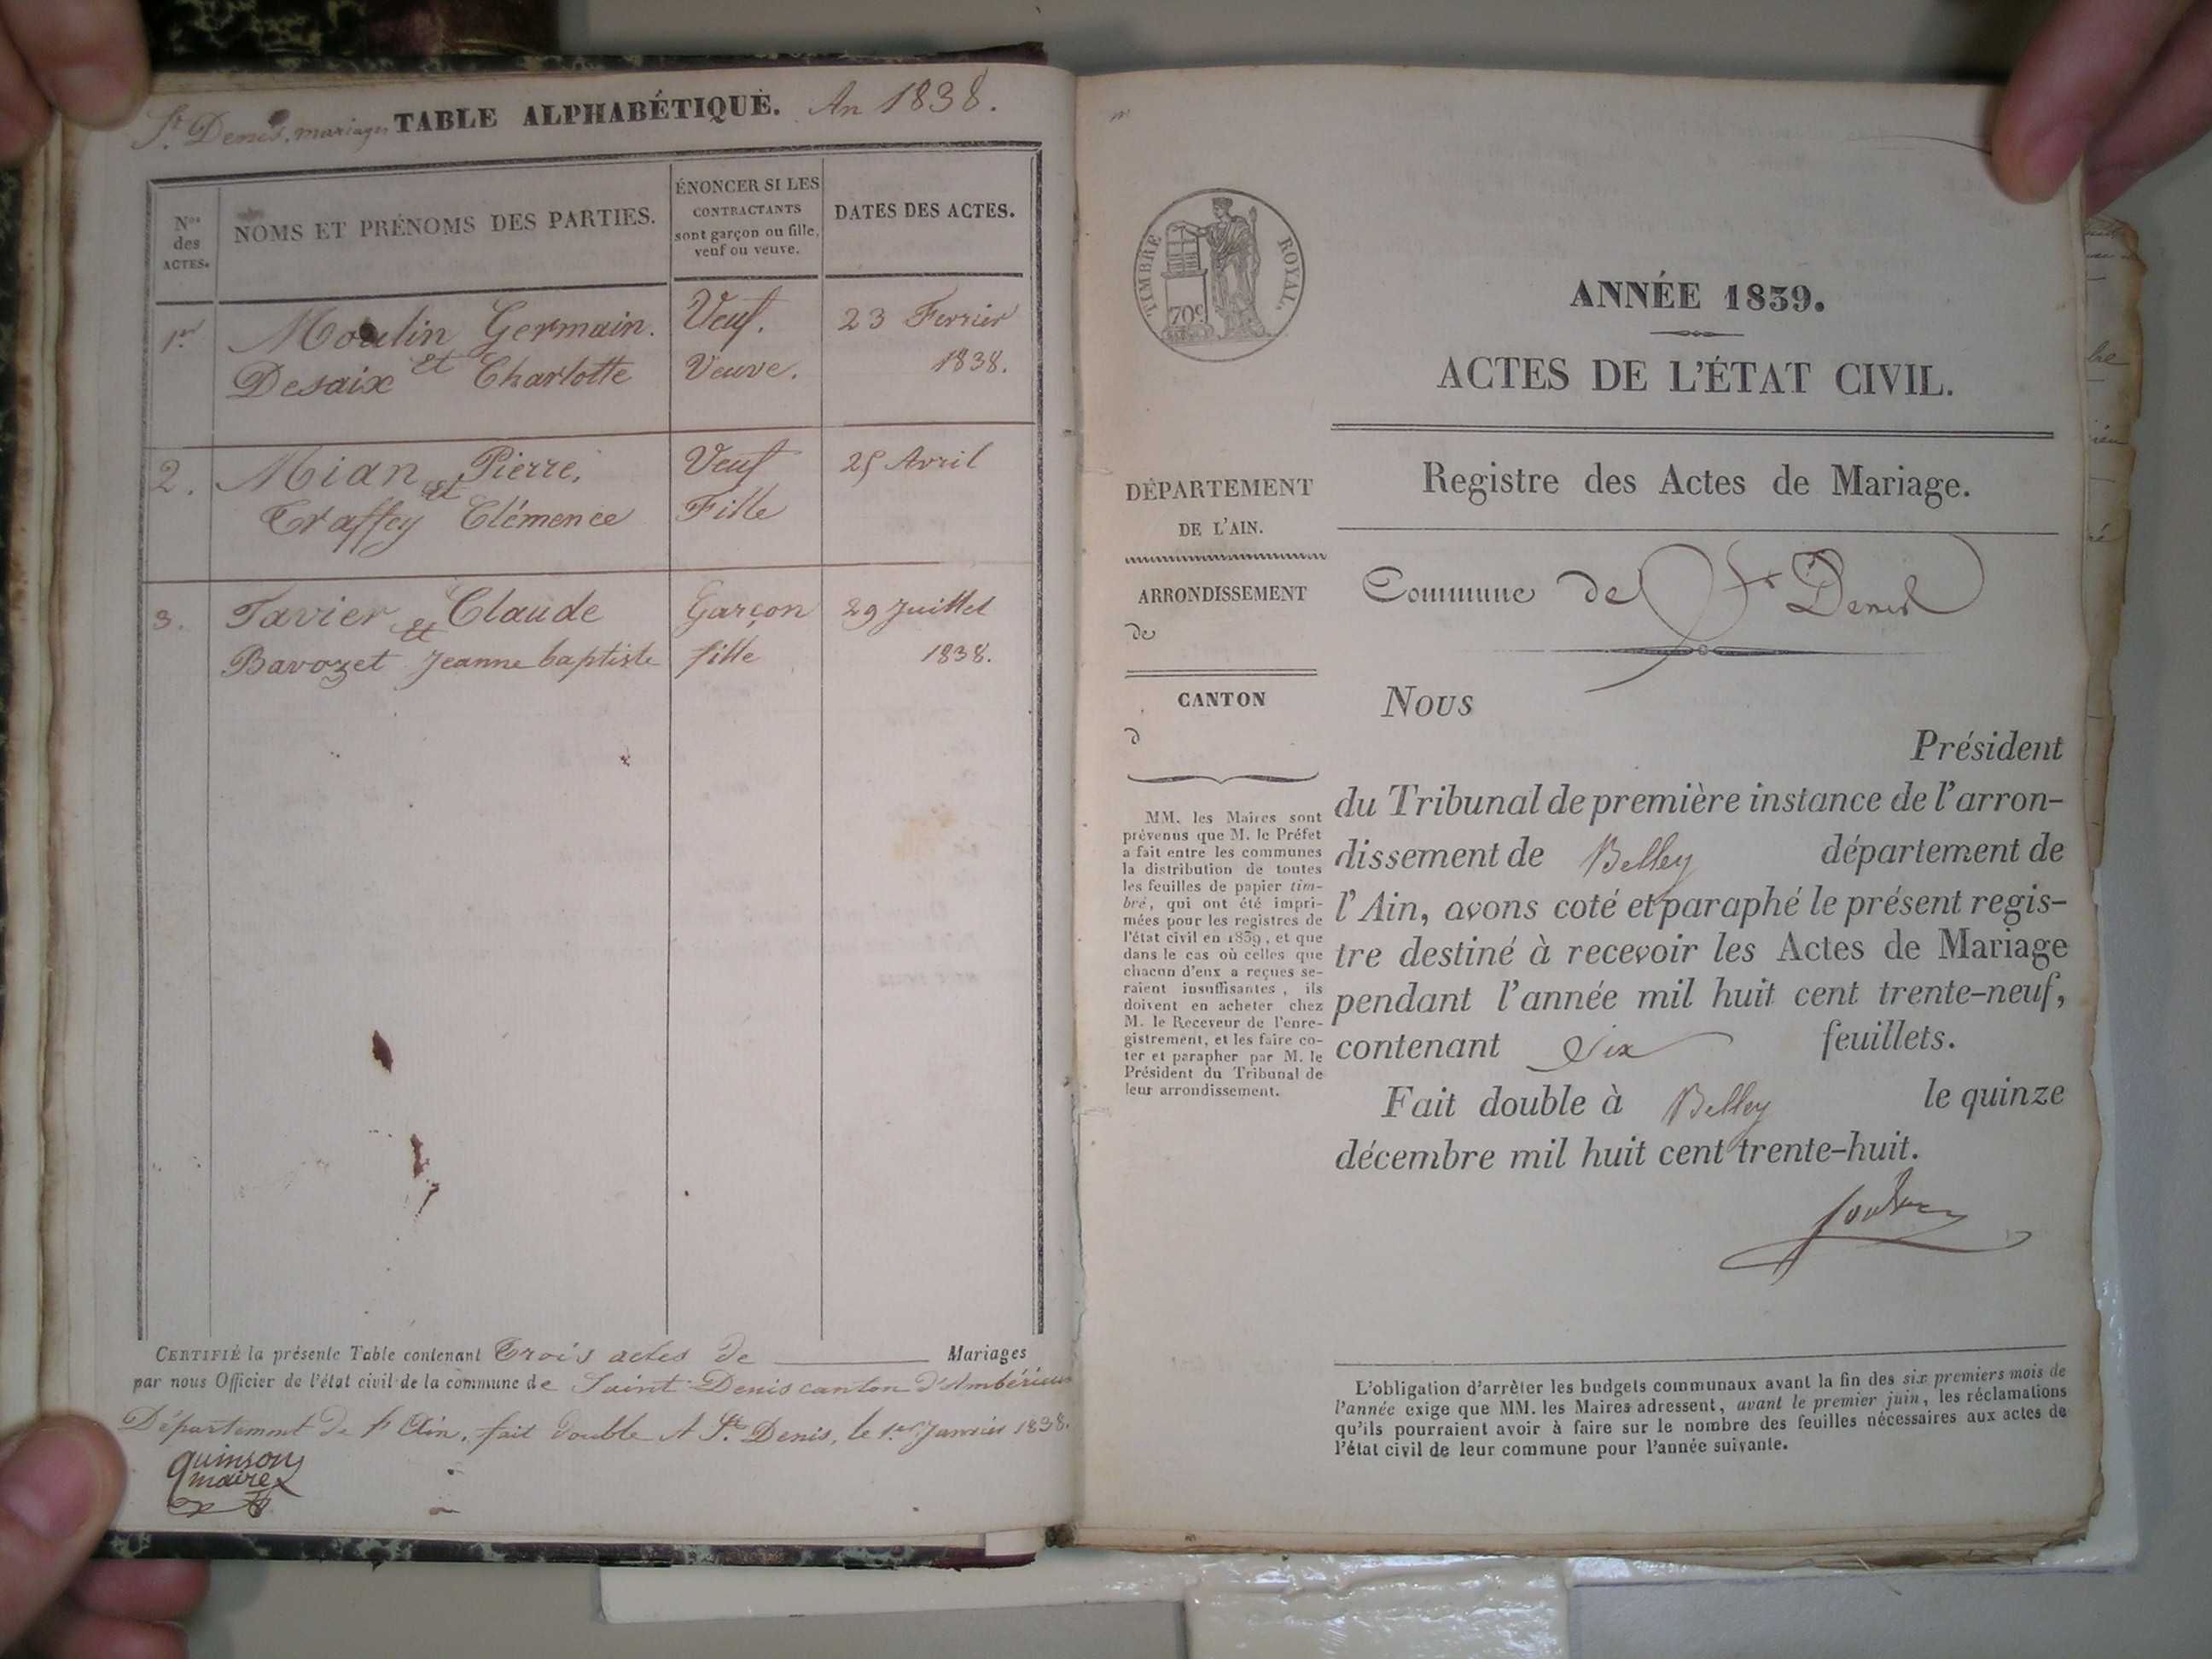 St. Denis, mariages TABLE ALPHABÉTIQUE. An 1838.
Nos des ACTES.
NOMS ET PRÉNOMS DES PARTIES.
ÉNONCER SI LES
CONTRACTANTS
sont garçon ou fille,
veuf ou veuve.
DATES DES ACTES.
1er Moulin Germain. Veuf. 23 Fevrier
et
Desaix Charlotte Veuve. 1838.
2. Mian Pierre, Veuf 25 Avril
et
Traffey Clémence Fille
3. Tavier et Claude Garçon 29 Juillet
Bavozet Jeanne baptiste fille 1838.
CERTIFIÉ la présente Table contenant Trois actes de Mariages
par nous Officier de l'état civil de la commune de Saint Denis canton d'Ambérieux
Département de l'Ain, fait double A St. Denis, le 1er Janvier 1838.
quinson
maire
TIMBRE ROYAL.
70c
ANNÉE 1839.
ACTES DE L'ÉTAT CIVIL.
Registre des Actes de Mariage.
Commune de St Denis
DÉPARTEMENT
DE L'AIN.
ARRONDISSEMENT
de
CANTON
d
MM. les Maires sont
prévenus que M. le Préfet
a fait entre les communes
la distribution de toutes
les feuilles de papier tim-
bré, qui ont été impri-
mées pour les registres de
l'état civil en 1839, et que
dans le cas où celles que
chacun d'eux a reçues se-
raient insuffisantes, ils
doivent en acheter chez
M. le Receveur de l'enre-
gistrement, et les faire co-
ter et parapher par M. le
Président du Tribunal de
leur arrondissement.
Nous
Président
du Tribunal de première instance de l'arron-
dissement de Belley département de
l'Ain, avons coté et paraphé le présent regis-
tre destiné à recevoir les Actes de Mariage
pendant l'année mil huit cent trente-neuf,
contenant Six feuillets.
Fait double à Belley le quinze
décembre mil huit cent trente-huit.
L'obligation d'arrêter les budgets communaux avant la fin des six premiers mois de
l'année exige que MM. les Maires adressent, avant le premier juin, les réclamations
qu'ils pourraient avoir à faire sur le nombre des feuilles nécessaires aux actes de
l'état civil de leur commune pour l'année suivante.